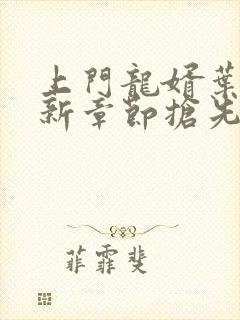 上門龍婿葉
新章節搶先
菲霏斐